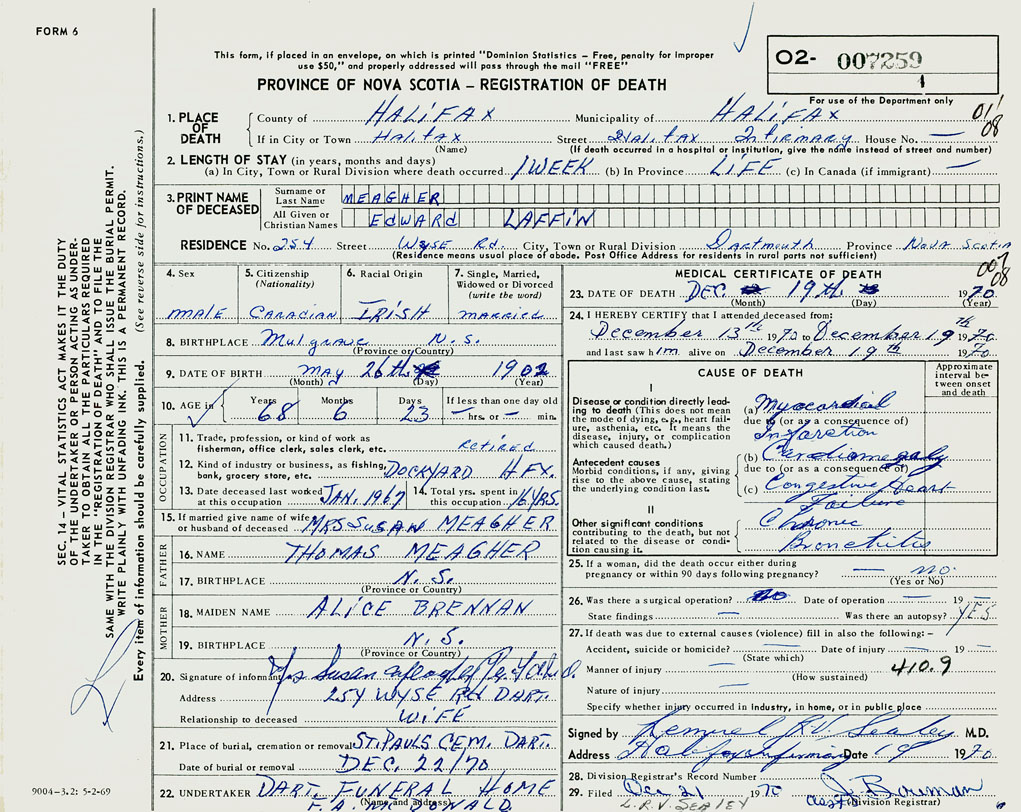 FORM 6
This form, if placed in an envelope, on which is printed "Dominion Statistics – Free, penalty for improper
use $50," and properly addressed will pass through the mail "FREE"
O2- 007259
1
For use of the Department only
PROVINCE OF NOVA SCOTIA – REGISTRATION OF DEATH
1. PLACE OF DEATH
County of HALIFAX Municipality of HALIFAX
If in City or Town Halifax Street Halifax Infirmary House No. —
(Name) (If death occurred in a hospital or institution, give the name instead of street and number)
01/08
2. LENGTH OF STAY (in years, months and days)
(a) In City, Town or Rural Division where death occurred 1 WEEK (b) In Province LIFE (c) In Canada (if immigrant) —
3. PRINT NAME OF DECEASED
Surname or Last Name MEAGHER
All Given or Christian Names EDWARD LAFFIN
RESIDENCE No. 254 Street Wyse Rd. City, Town or Rural Division Dartmouth Province Nova Scotia
(Residence means usual place of abode. Post Office Address for residents in rural parts not sufficient)
007/08
4. Sex
male
5. Citizenship (Nationality)
Canadian
6. Racial Origin
IRISH
7. Single, Married, Widowed or Divorced (write the word)
married
8. BIRTHPLACE Mulgrave N.S.
(Province or Country)
9. DATE OF BIRTH May 26th 1902
(Month) (Day) (Year)
10. AGE in Years 68 Months 6 Days 23 If less than one day old — hrs. or — min.
OCCUPATION
11. Trade, profession, or kind of work as fisherman, office clerk, sales clerk, etc. retired
12. Kind of industry or business, as fishing, bank, grocery store, etc. DOCKYARD HFX.
13. Date deceased last worked at this occupation JAN. 1967
14. Total yrs. spent in this occupation 16 YRS.
15. If married give name of wife or husband of deceased MRS SUSAN MEAGHER
FATHER
16. NAME THOMAS MEAGHER
17. BIRTHPLACE N.S.
(Province or Country)
MOTHER
18. MAIDEN NAME ALICE BRENNAN
19. BIRTHPLACE N.S.
(Province or Country)
20. Signature of informant Susan
Address 254 WYSE RD DART.
Relationship to deceased WIFE
21. Place of burial, cremation or removal ST. PAULS CEM. DART.
Date of burial or removal DEC. 22/70
22. UNDERTAKER DART. FUNERAL HOME
(Name and address)
MEDICAL CERTIFICATE OF DEATH
23. DATE OF DEATH DEC. 19th 1970
(Month) (Day) (Year)
24. I HEREBY CERTIFY that I attended deceased from:
December 13th 1970 to December 19th 1970
and last saw him alive on December 19th 1970
CAUSE OF DEATH
Approximate interval between onset and death
I
Disease or condition directly leading to death (This does not mean the mode of dying, e.g., heart failure, asthenia, etc. It means the disease, injury, or complication which caused death.)
(a) Myocardial
due to (or as a consequence of)
Infarction
Antecedent causes
Morbid conditions, if any, giving rise to the above cause, stating the underlying condition last.
(b) Cardiomegaly
due to (or as a consequence of)
(c) Congestive Heart
Failure
II
Other significant conditions contributing to the death, but not related to the disease or condition causing it.
Chronic
Bronchitis
25. If a woman, did the death occur either during pregnancy or within 90 days following pregnancy? — no.
(Yes or No)
26. Was there a surgical operation? NO Date of operation — 19 —
State findings — Was there an autopsy? YES
27. If death was due to external causes (violence) fill in also the following:–
Accident, suicide or homicide? — Date of injury — 19 —
(State which)
Manner of injury — 410.9
(How sustained)
Nature of injury —
Specify whether injury occurred in industry, in home, or in public place
Signed by Lemuel R.V. Sealey M.D.
Address Halifax Infirmary Date 19 1970
28. Division Registrar's Record Number
29. Filed Dec 21 1970 J. Bowman
L.R.V SEALEY (Division Registrar)
SEC. 14 – VITAL STATISTICS ACT MAKES IT THE DUTY
OF THE UNDERTAKER OR PERSON ACTING AS UNDER-
TAKER TO OBTAIN ALL THE PARTICULARS REQUIRED
IN THE "REGISTRATION OF DEATH" AND FILE THE
SAME WITH THE DIVISION REGISTRAR WHO SHALL ISSUE THE BURIAL PERMIT.
WRITE PLAINLY WITH UNFADING INK. THIS IS A PERMANENT RECORD.
Every item of information should be carefully supplied. (See reverse side for instructions.)
9004–3.2: 5-2-69